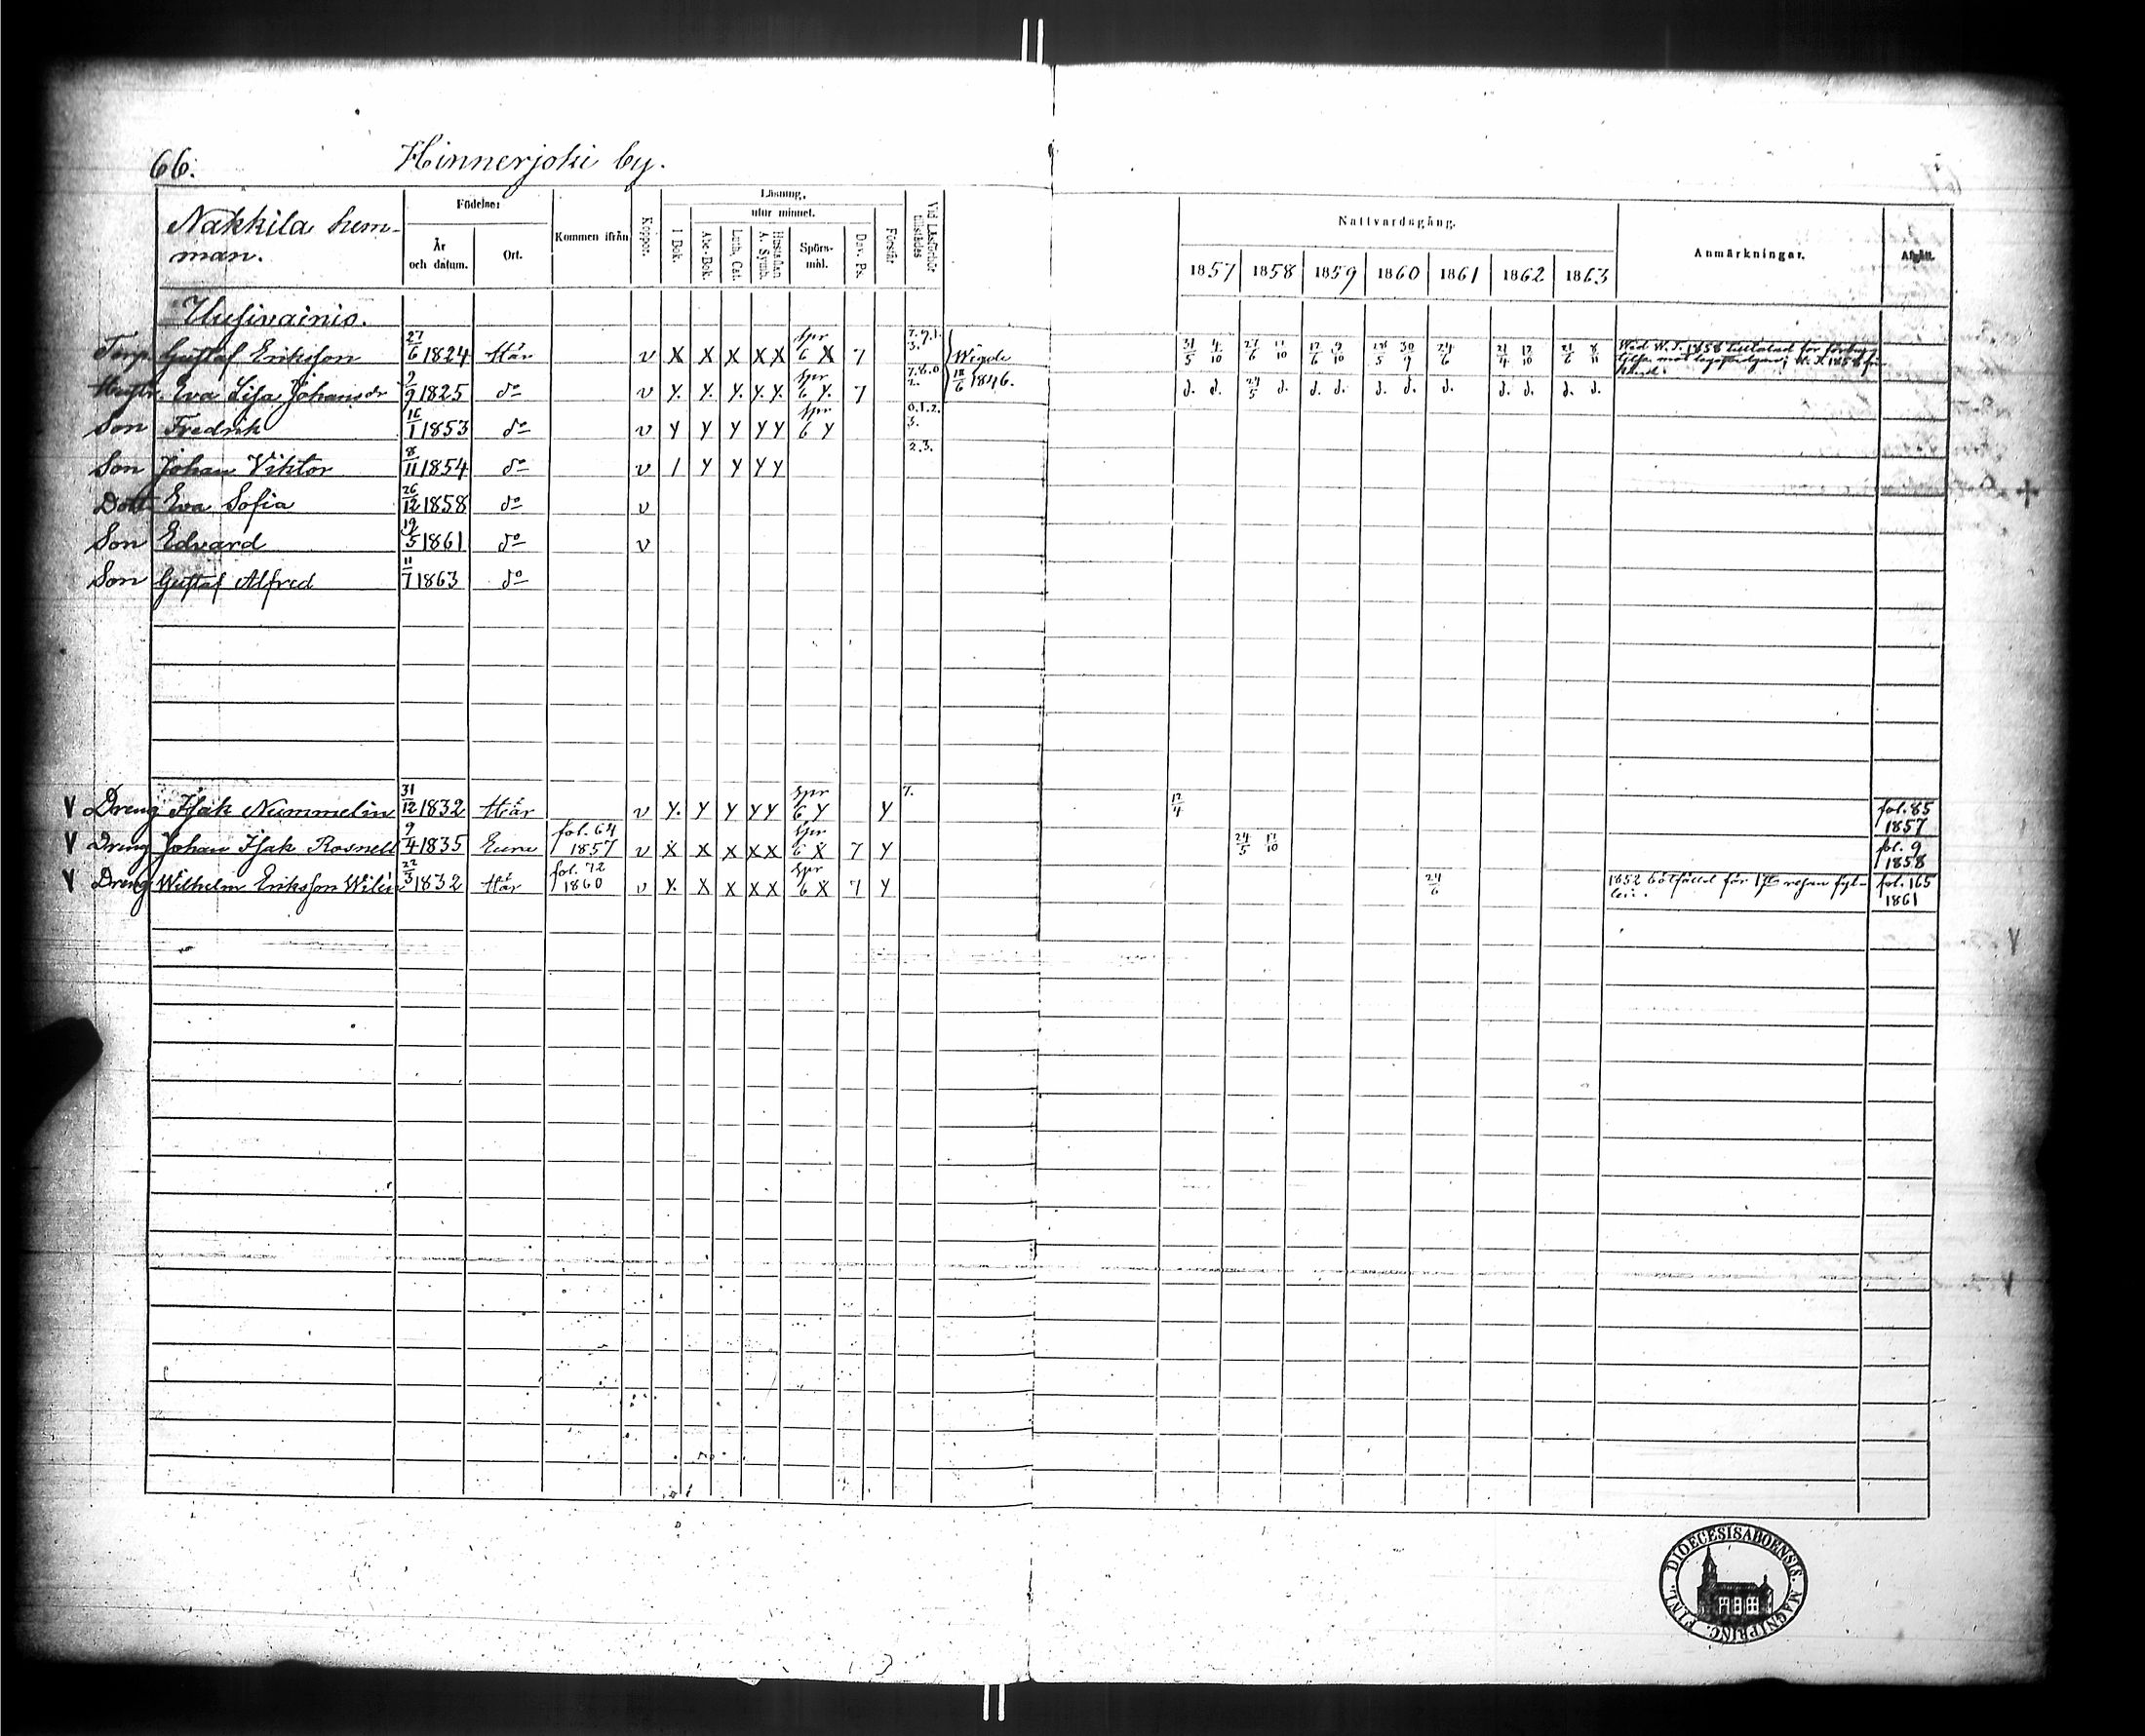 66. Hinnerjoki by.
Nakkila hem-
man.
Födelse:
År
och datum.
Ort.
Kommen ifrån
Koppor.
Läsning,
utur minnet.
I Bok.
Abc-Bok.
Luth. Cat.
Hustaflan
A. Symb.
Spörs-
mål.
Dav. Ps.
Förstår
Vid Läsförhör
tillstädes
Nattvardsgång.
1857 1858 1859 1860 1861 1862 1863
Anmärkningar.
Afgått.
Uusivainio.
Torp. Gustaf Eriksson 27/6 1824 Här v X X X X X Spr 6 X 7 7.9.1. 3. Wigde 31/5 4/10 27/6 11/10 12/6 9/10 30/9 24/6 21/4 12/10 21/6 8/11
Hustr. Eva Lisa Johansdr 2/9 1825 do v Y. Y. Y. Y. Y. Spr 6 Y. 7 7.8.0 2. 18/6 1846. d. d. 24/5 d. d. d. d. d. d. d. d. d. d.
Son Fredrik 16/1 1853 do v Y Y Y Y Y Spr 6 Y 0.1.2. 3.
Son Johan Viktor 8/11 1854 do v / Y Y Y Y 2.3.
Dott. Eva Sofia 26/12 1858 do v
Son Edvard 19/5 1861 do v
Son Gustaf Alfred 11/7 1863 do
V Dreng Isak Nummelin 31/12 1832 Här v Y. Y Y Y Y Spr 6 Y Y 7. 12/4 fol. 85 1857
V Dreng Johan Isak Rosnell 9/4 1835 Eura fol. 64 1857 v X X X X X Spr 6 X 7 Y 24/5 11/10 fol. 9 1858
V Dreng Wilhelm Eriksson Wilén 22/3 1832 Här fol. 72 1860 v Y. X X X X Spr 6 X 7 Y 24/6 1852 bötfälld för 1sta resan fyl- leri. fol. 165 1861
DIOECESIS ABOENSIS. MAGNI PRINC. FINL.